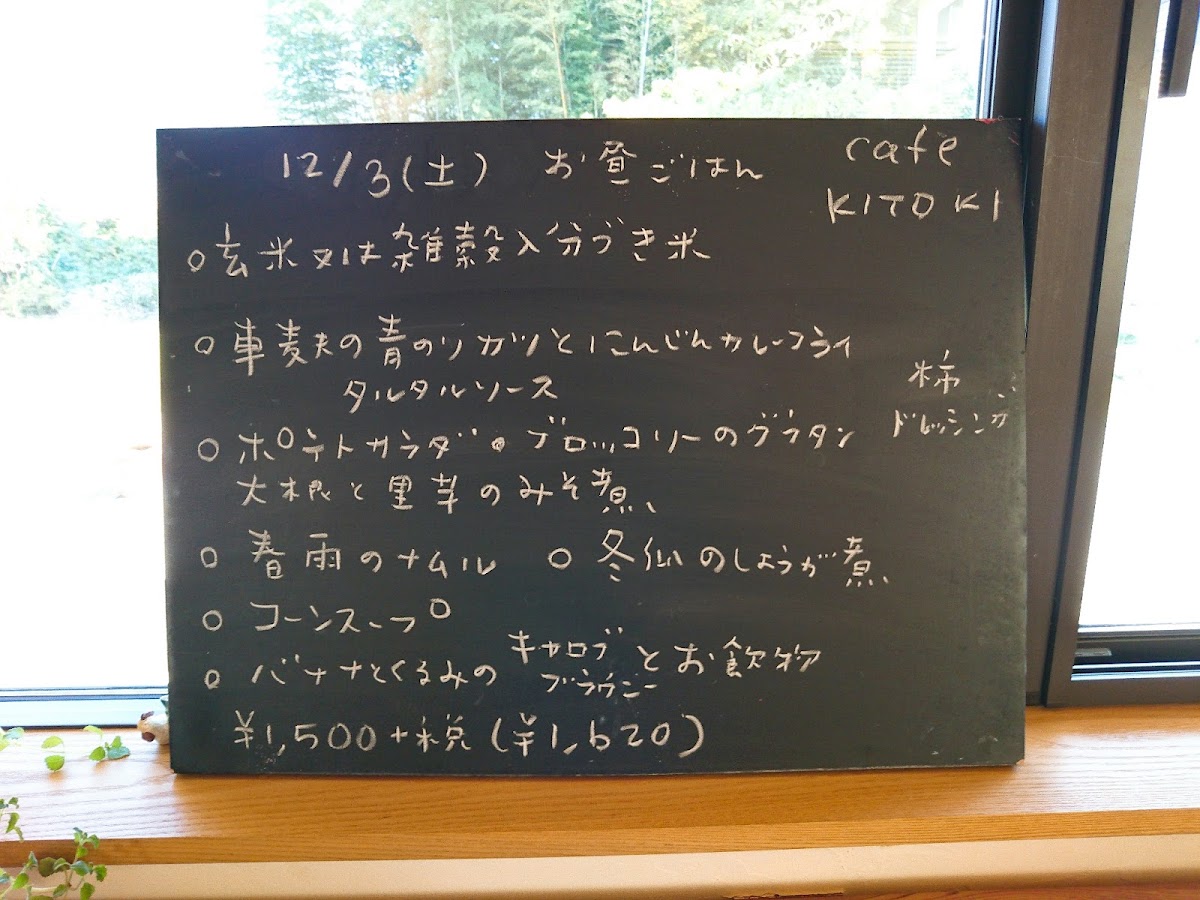 12/3(土) お昼ごはん
cafe
KITOKI
○玄米又は雑穀入分づき米
○車麦夫の青のりカツとにんじんカレーフライ
タルタルソース
柿
ドレッシング
○ポテトサラダ・ブロッコリーのグラタン
大根と里芋のみそ煮、
○春雨のナムル ○冬仙のしょうが煮、
○コーンスープ
○バナナとくるみのキャロブブラウニーとお飲物
¥1,500+税(¥1,620)